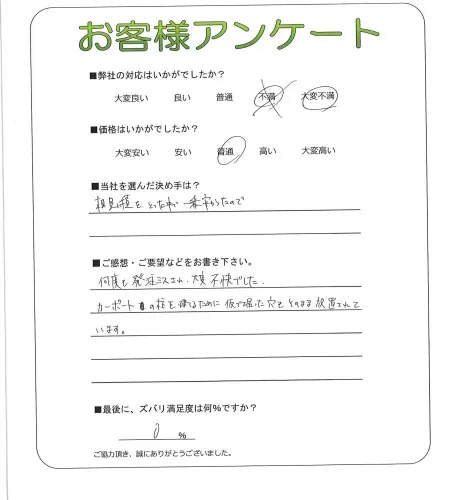 お客様アンケート
■弊社の対応はいかがでしたか？
大変良い 良い 普通 不満 大変不満
■価格はいかがでしたか？
大変安い 安い 普通 高い 大変高い
■当社を選んだ決め手は？
相見積をとった中で一番安かったので
■ご感想・ご要望などをお書き下さい。
何度も発注ミスされ、大変不快でした。
カーポートの柱を建てるために仮で掘った穴をそのまま放置されて
います。
■最後に、ズバリ満足度は何%ですか？
0 %
ご協力頂き、誠にありがとうございました。